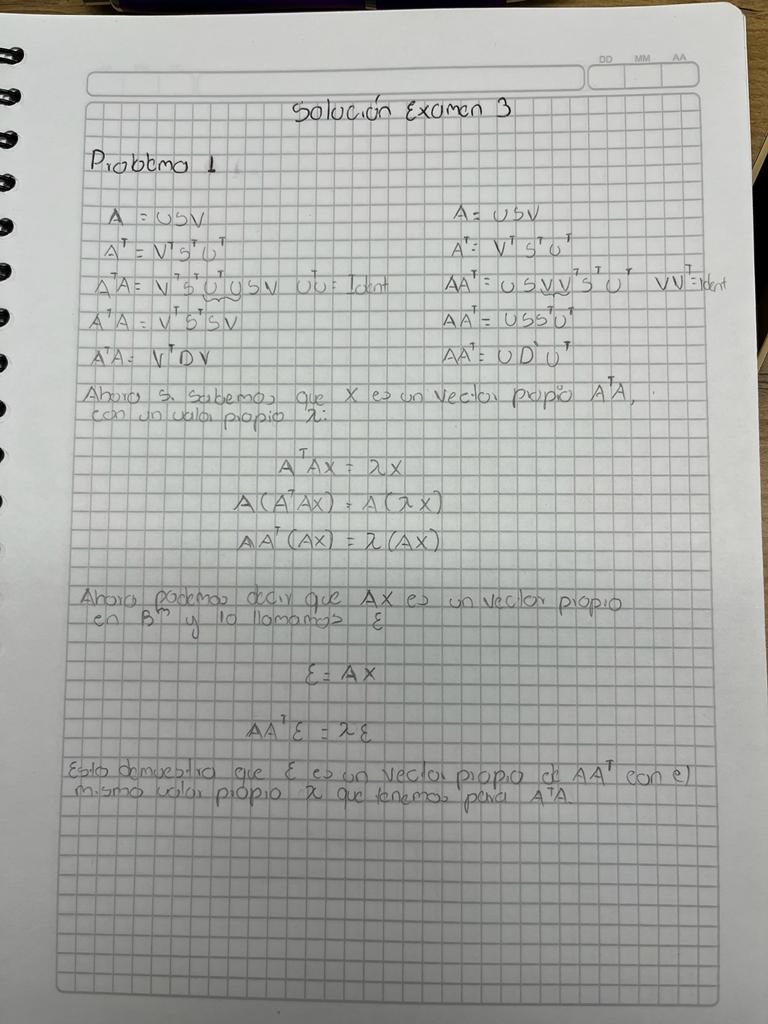 DD MM AA
Solución Examen 3
Problema 1
A = USV
Aᵀ = VᵀSᵀUᵀ
AᵀA = VᵀSᵀUᵀUSV UUᵀ = Ident
AᵀA = VᵀSᵀSV
AᵀA = VᵀDV
A = USV
Aᵀ = VᵀSᵀUᵀ
AAᵀ = USVVᵀSᵀUᵀ VVᵀ = Ident
AAᵀ = USSᵀUᵀ
AAᵀ = UD'Uᵀ
Ahora si sabemos que X es un vector propio AᵀA,
con un valor propio λ:
AᵀAX = λX
A(AᵀAX) = A(λX)
AAᵀ(AX) = λ(AX)
Ahora podemos decir que AX es un vector propio
en Bᵐ y lo llamamos Ɛ
Ɛ = AX
AAᵀƐ = λƐ
Esto demuestra que Ɛ es un vector propio de AAᵀ con el
mismo valor propio λ que tenemos para AᵀA.